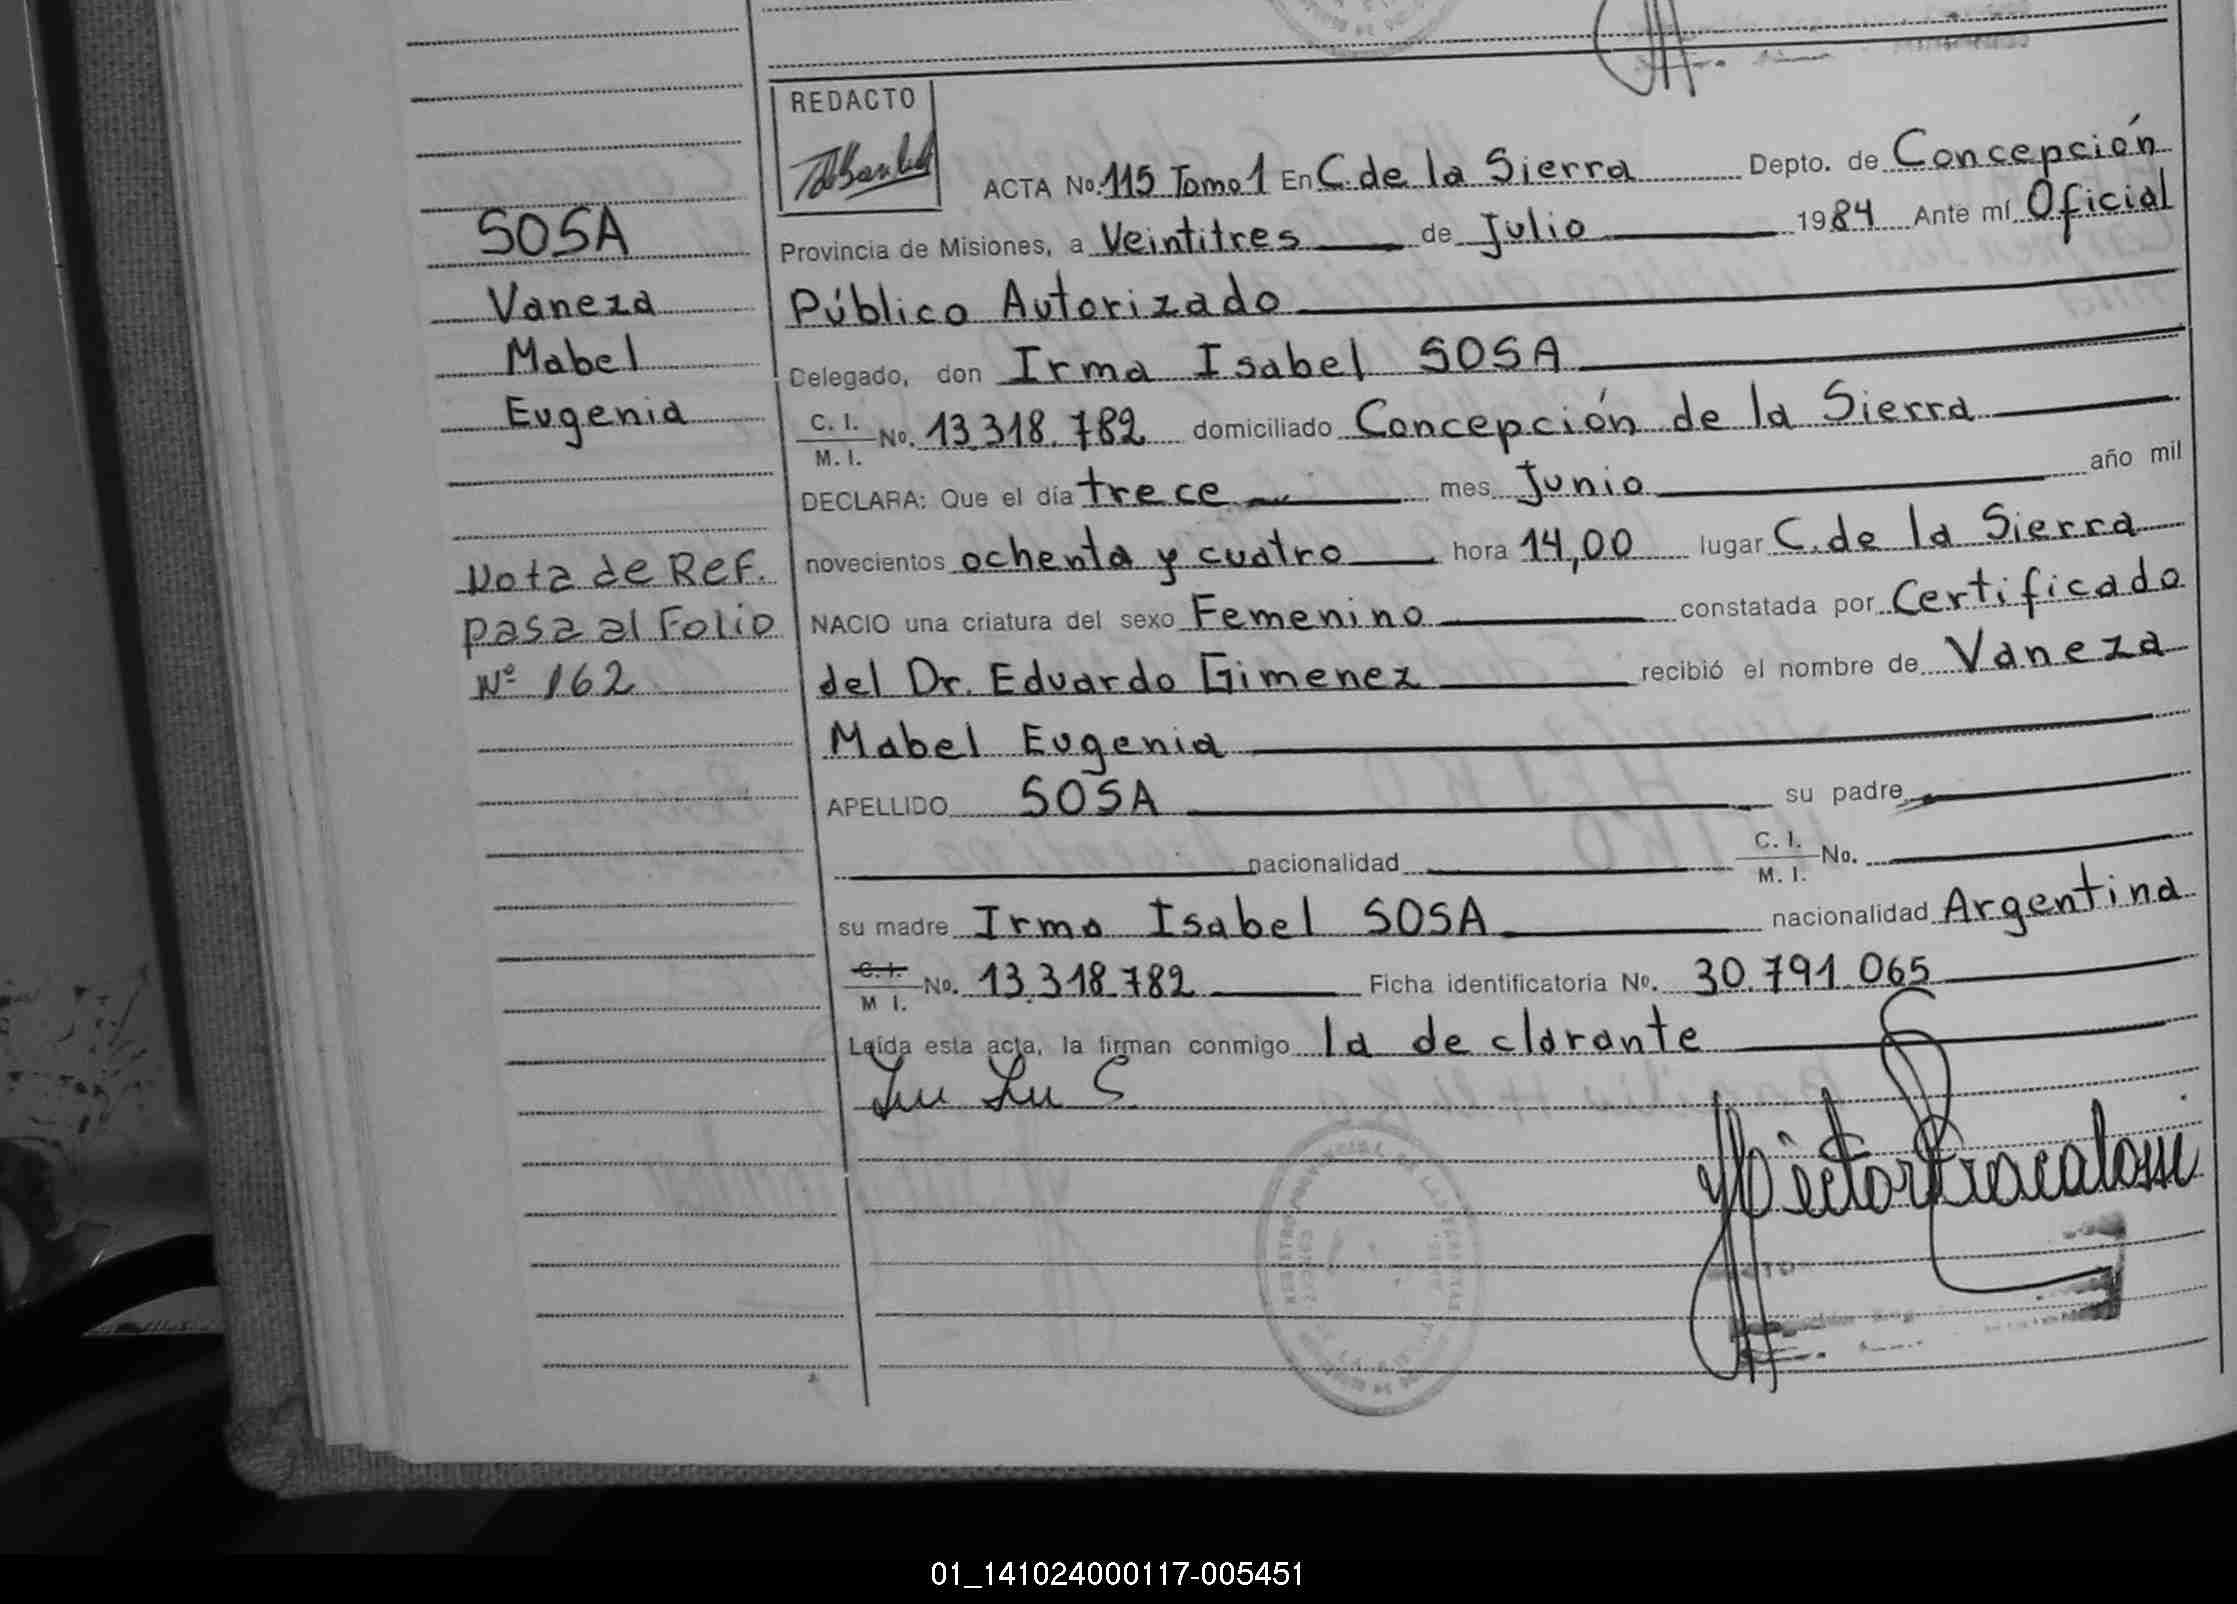 REDACTO
ACTA No. 115 Tomo 1 En C. de la Sierra Depto. de Concepción
Provincia de Misiones, a Veintitres de Julio 1984 Ante mí Oficial
Público Autorizado
Delegado, don Irma Isabel SOSA
C. I.
M. I.
No. 13.318.782 domiciliado Concepción de la Sierra
DECLARA: Que el día trece mes Junio año mil
novecientos ochenta y cuatro hora 14,00 lugar C. de la Sierra
NACIO una criatura del sexo Femenino constatada por Certificado
del Dr. Eduardo Gimenez recibió el nombre de Vaneza
Mabel Eugenia
APELLIDO SOSA su padre
nacionalidad C. I. M. I. No.
su madre Irma Isabel SOSA nacionalidad Argentina
C. I.
M I.
No. 13.318.782 Ficha identificatoria No. 30.791.065
Leída esta acta, la firman conmigo la declarante
SOSA
Vaneza
Mabel
Eugenia
Nota de Ref.
pasa al Folio
Nº 162
01_141024000117-005451